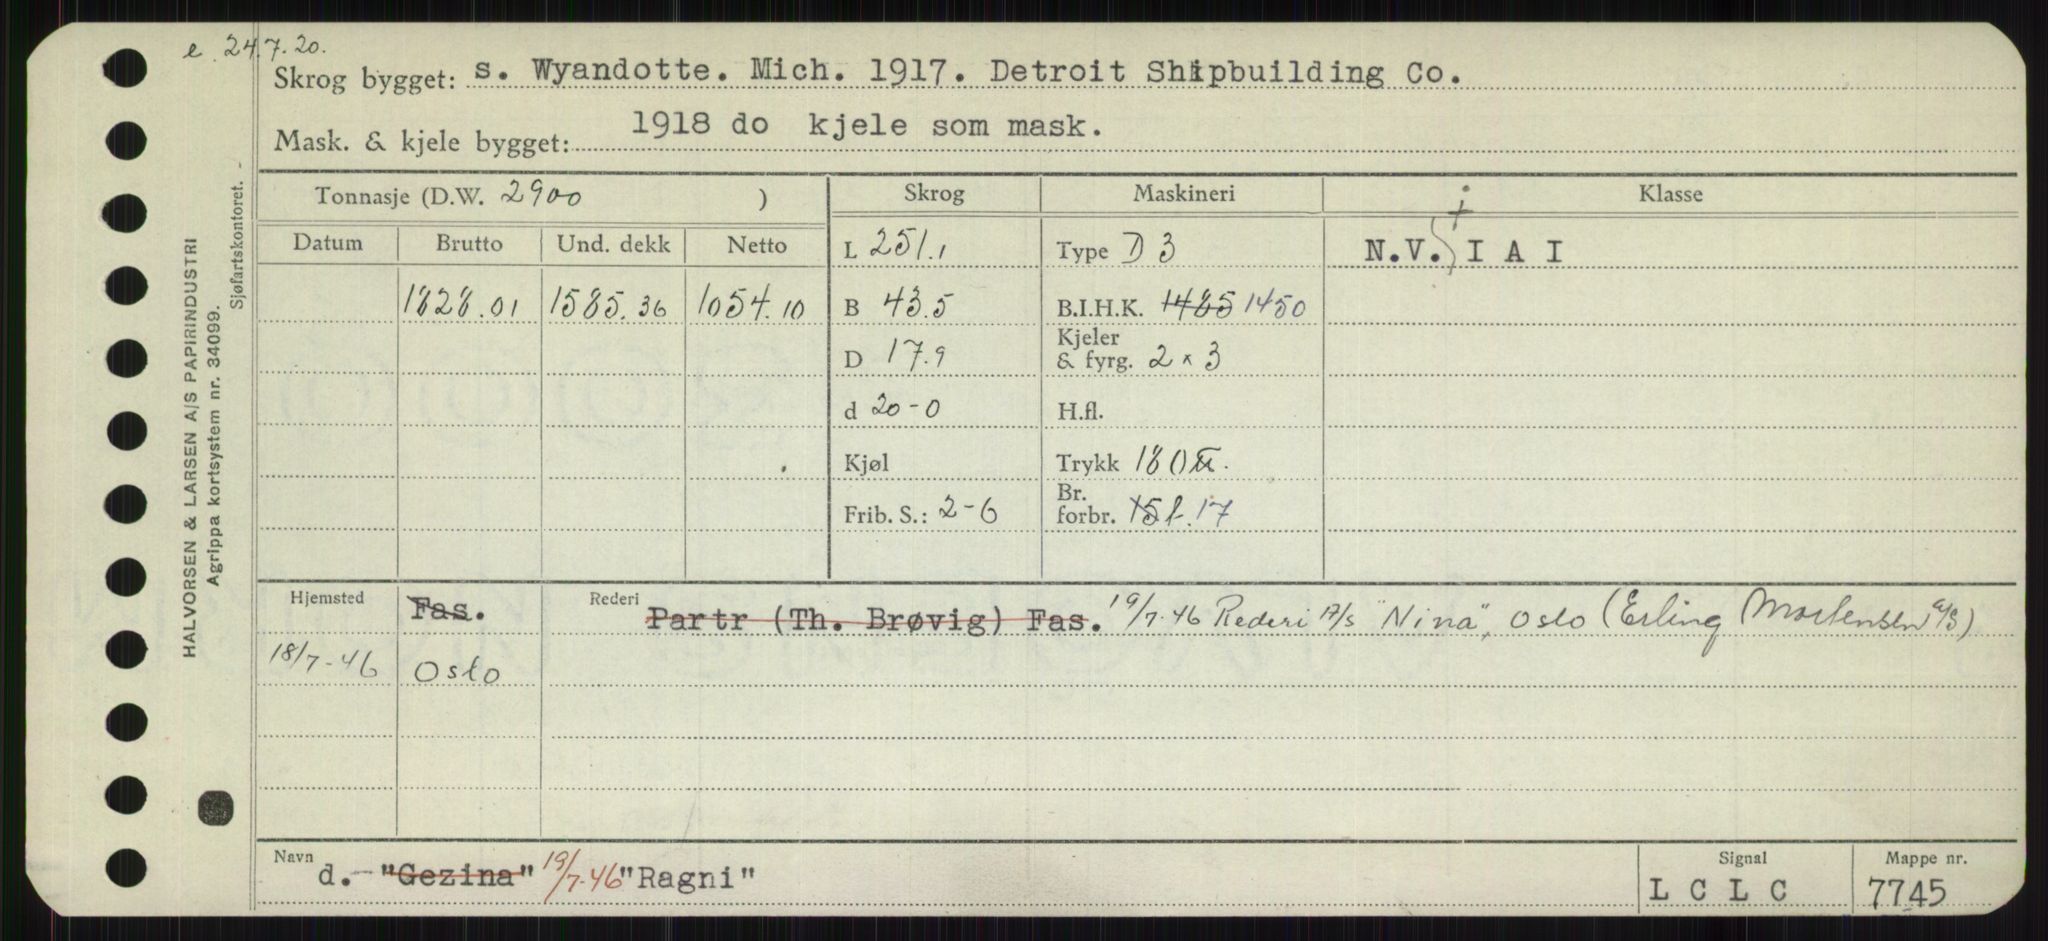 e. 24.7.20.
Skrog bygget: s. Wyandotte. Mich. 1917. Detroit Shipbuilding Co.
Mask. & kjele bygget: 1918 do kjele som mask.
Tonnasje (D.W. 2900 ) Skrog Maskineri Klasse
Datum Brutto Und. dekk Netto L 251.1 Type D 3 N.V. + I A I
1828.01 1585.36 1054.10 B 43.5 B.I.H.K. 1485 1450
D 17.9 Kjeler & fyrg. 2 x 3
d 20-0 H.fl.
Kjøl Trykk 180
Frib. S.: 2-6 Br. forbr. 15 f. 17
Hjemsted Fas. Rederi Partr (Th. Brøvig) Fas. 19/7-46 Rederi A/S "Nina", Oslo (Erling Mortensen A/S)
18/7-46 Oslo
Navn d. "Gezina" 19/7-46 "Ragni" Signal L C L C Mappe nr. 7745
HALVORSEN & LARSEN A/S PAPIRINDUSTRI
Agrippa kortsystem nr. 34099.
Sjøfartskontoret. -